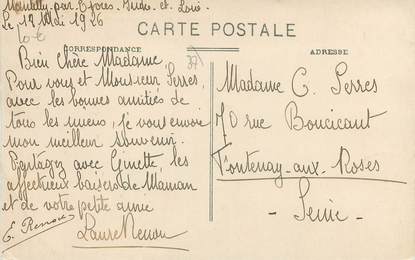 par Epeires. Indre. et. Loire.
Le 12 Mai 1926
CARTE POSTALE
CORRESPONDANCE
ADRESSE
Bien Chère Madame,
Pour vous et Monsieur Serres,
avec les bonnes amitiés de
tous les miens, je vous envoie
mon meilleur souvenir.
Partagez avec Ginette, les
affectueux baisers de Maman
et de votre petite amie
Laure Renou
E. Renou
Madame C. Serres
70 rue Boucicaut
Fontenay-aux-Roses
- Seine -